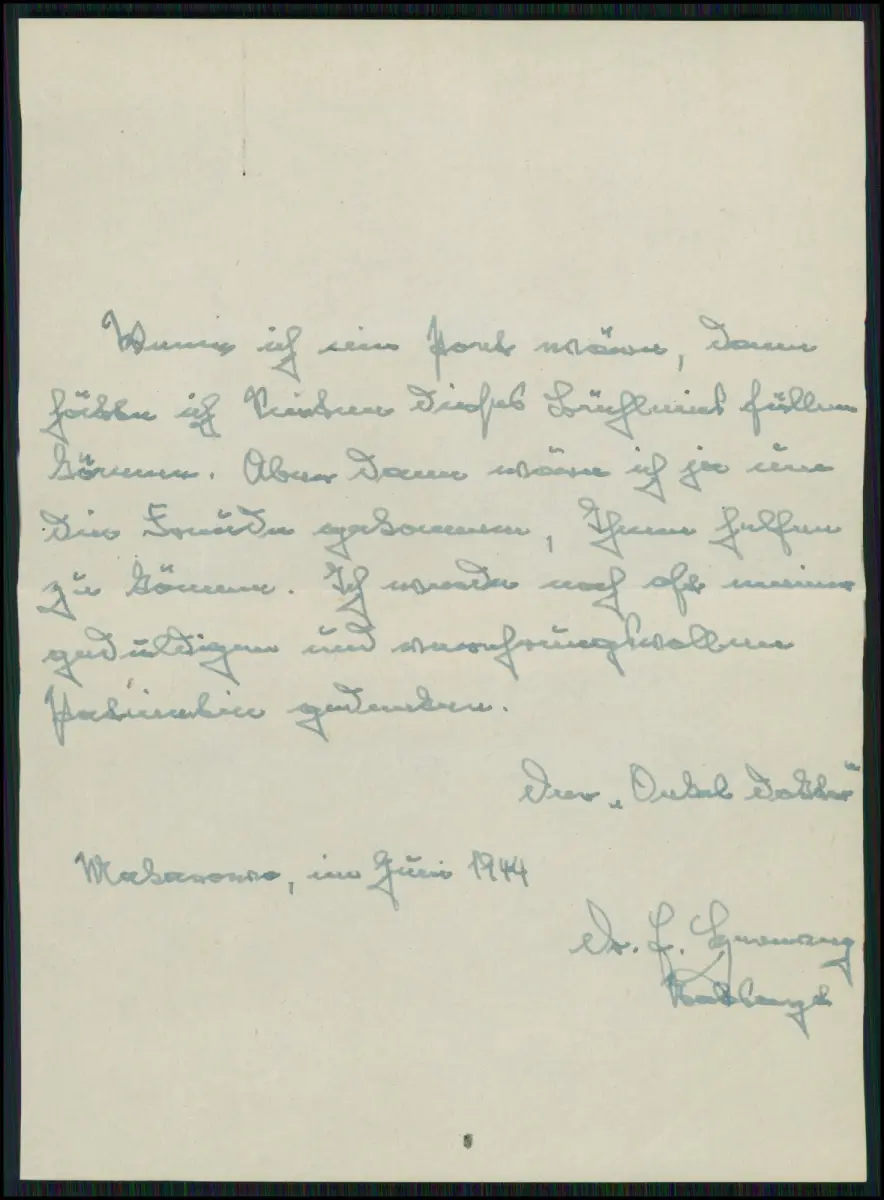 Wenn ich ein Poet wäre, dann
hätte ich Seiten dieses Büchleins füllen
können. Aber dann wäre ich ja um
die Freude gekommen, Ihnen helfen
zu können. Ich werde noch oft meiner
geduldigen und verehrungsvollen
Patientin gedenken.
Der „Onkel Doktor"
Makarowo, im Juni 1944
Dr. L.
Stabsarzt